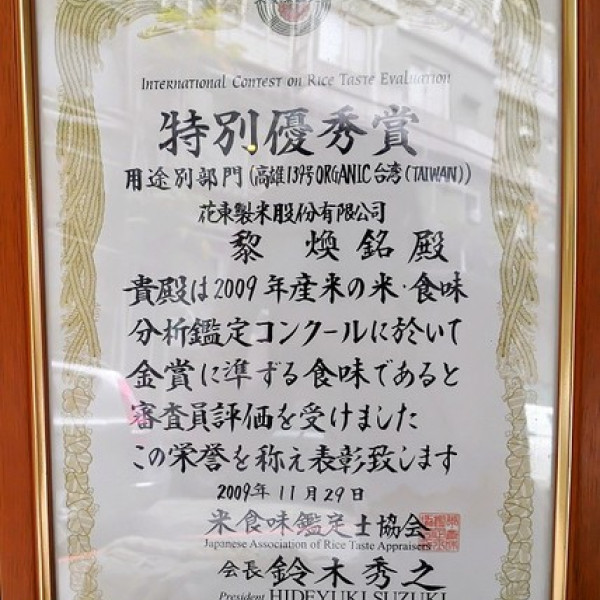 International Contest on Rice Taste Evaluation
特別優秀賞
用途別部門(高雄139号ORGANIC台湾(TAIWAN))
花東製米股份有限公司
黎 煥銘殿
貴殿は2009年産米の米・食味
分析鑑定コンクールに於いて
金賞に準ずる食味であると
審査員評価を受けました
この栄誉を称え表彰致します
2009年11月29日
米食味鑑定士協会
Japanese Association of Rice Taste Appraisers
会長 鈴木秀之
President HIDEYUKI SUZUKI